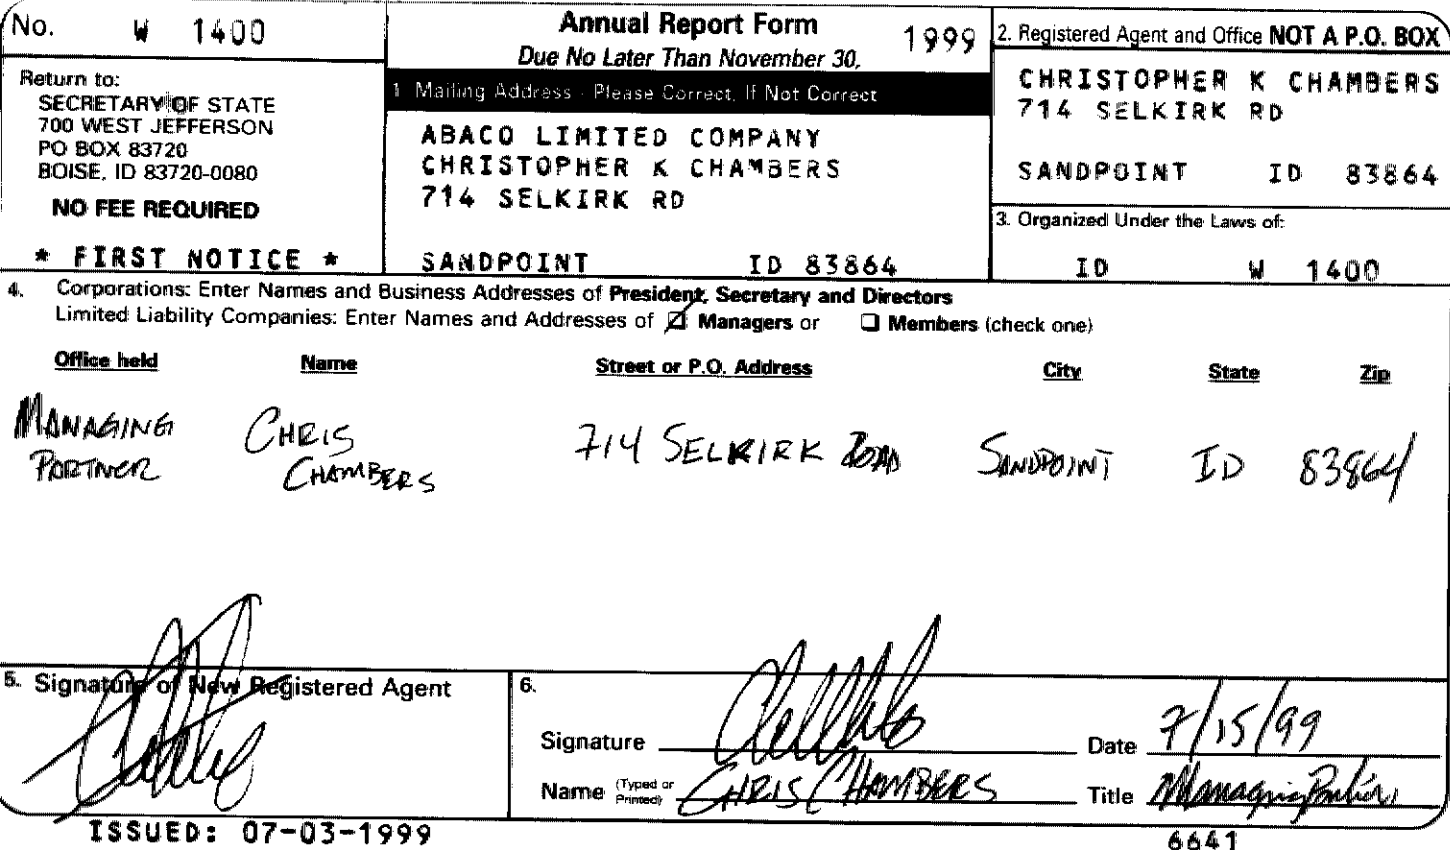 No. W 1400
Return to:
SECRETARY OF STATE
700 WEST JEFFERSON
PO BOX 83720
BOISE, ID 83720-0080
NO FEE REQUIRED
* FIRST NOTICE *
Annual Report Form 1999
Due No Later Than November 30,
1 Mailing Address - Please Correct, If Not Correct
ABACO LIMITED COMPANY
CHRISTOPHER K CHAMBERS
714 SELKIRK RD
SANDPOINT ID 83864
2. Registered Agent and Office NOT A P.O. BOX
CHRISTOPHER K CHAMBERS
714 SELKIRK RD
SANDPOINT ID 83864
3. Organized Under the Laws of:
ID W 1400
4. Corporations: Enter Names and Business Addresses of President, Secretary and Directors
Limited Liability Companies: Enter Names and Addresses of ☑ Managers or ☐ Members (check one)
Office held Name Street or P.O. Address City State Zip
MANAGING CHRIS 714 SELKIRK ROAD SANDPOINT ID 83864
PARTNER CHAMBERS
5. Signature of New Registered Agent
6.
Signature Date 7/15/99
Name (Typed or Printed) CHRIS CHAMBERS Title Managing Partner
ISSUED: 07-03-1999
6641